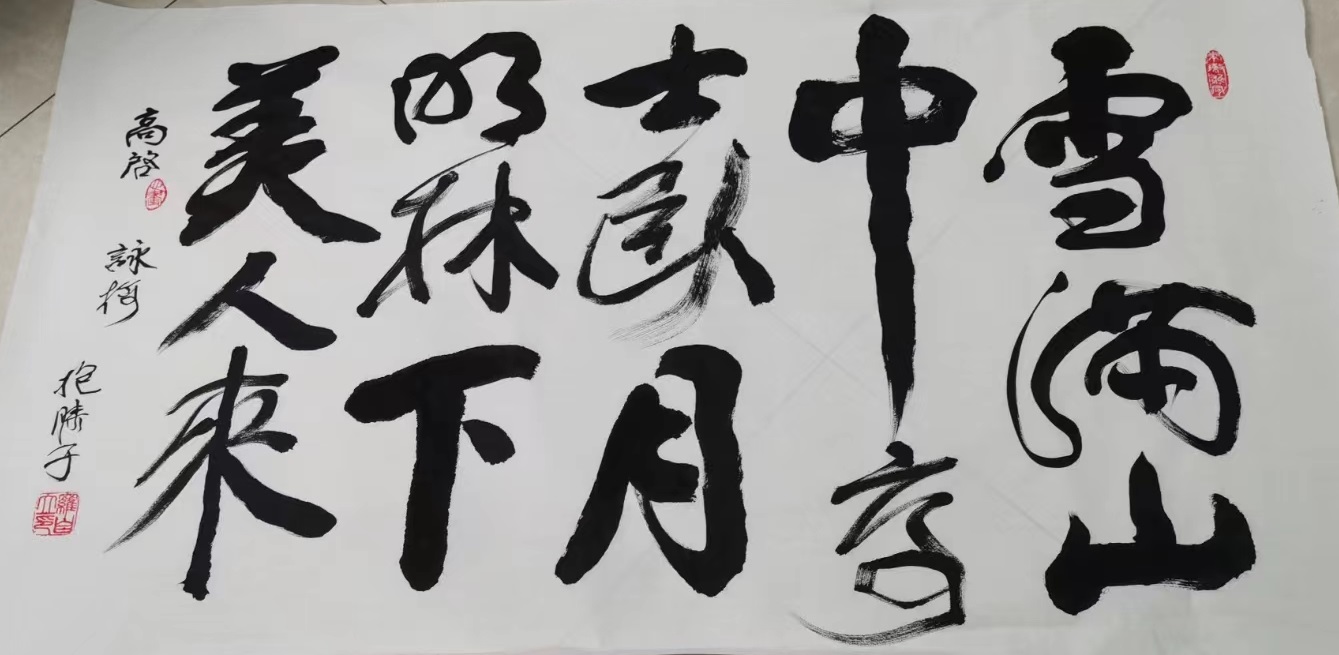 雪满山
中高
士卧月
明林下
美人來
高啓
詠梅
抱勝子